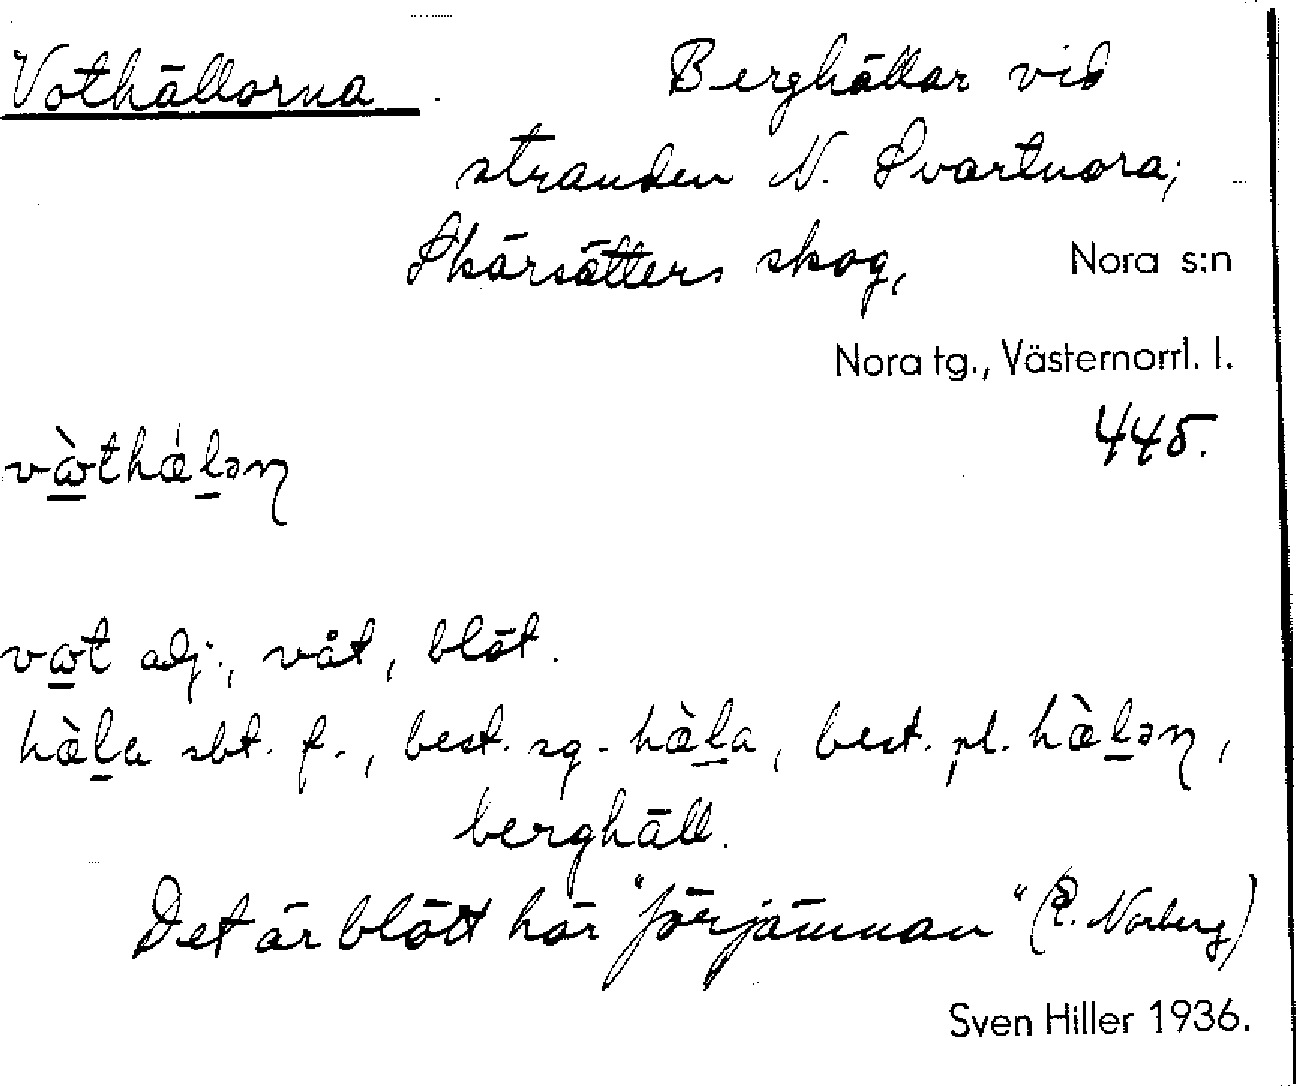 Vothällorna. Berghällar vid
stranden N. Svartnora;
Skärsätters skog, Nora s:n
Nora tg., Västernorrl. l.
445.
vɷ̀thæ̀lən
vɷt adj., våt, blöt.
hæ̀la sbt. f., best. sg. hæ̀la, best. pl. hæ̀lən,
berghäll.
Det är blött här "förjämnan" (E. Norberg)
Sven Hiller 1936.